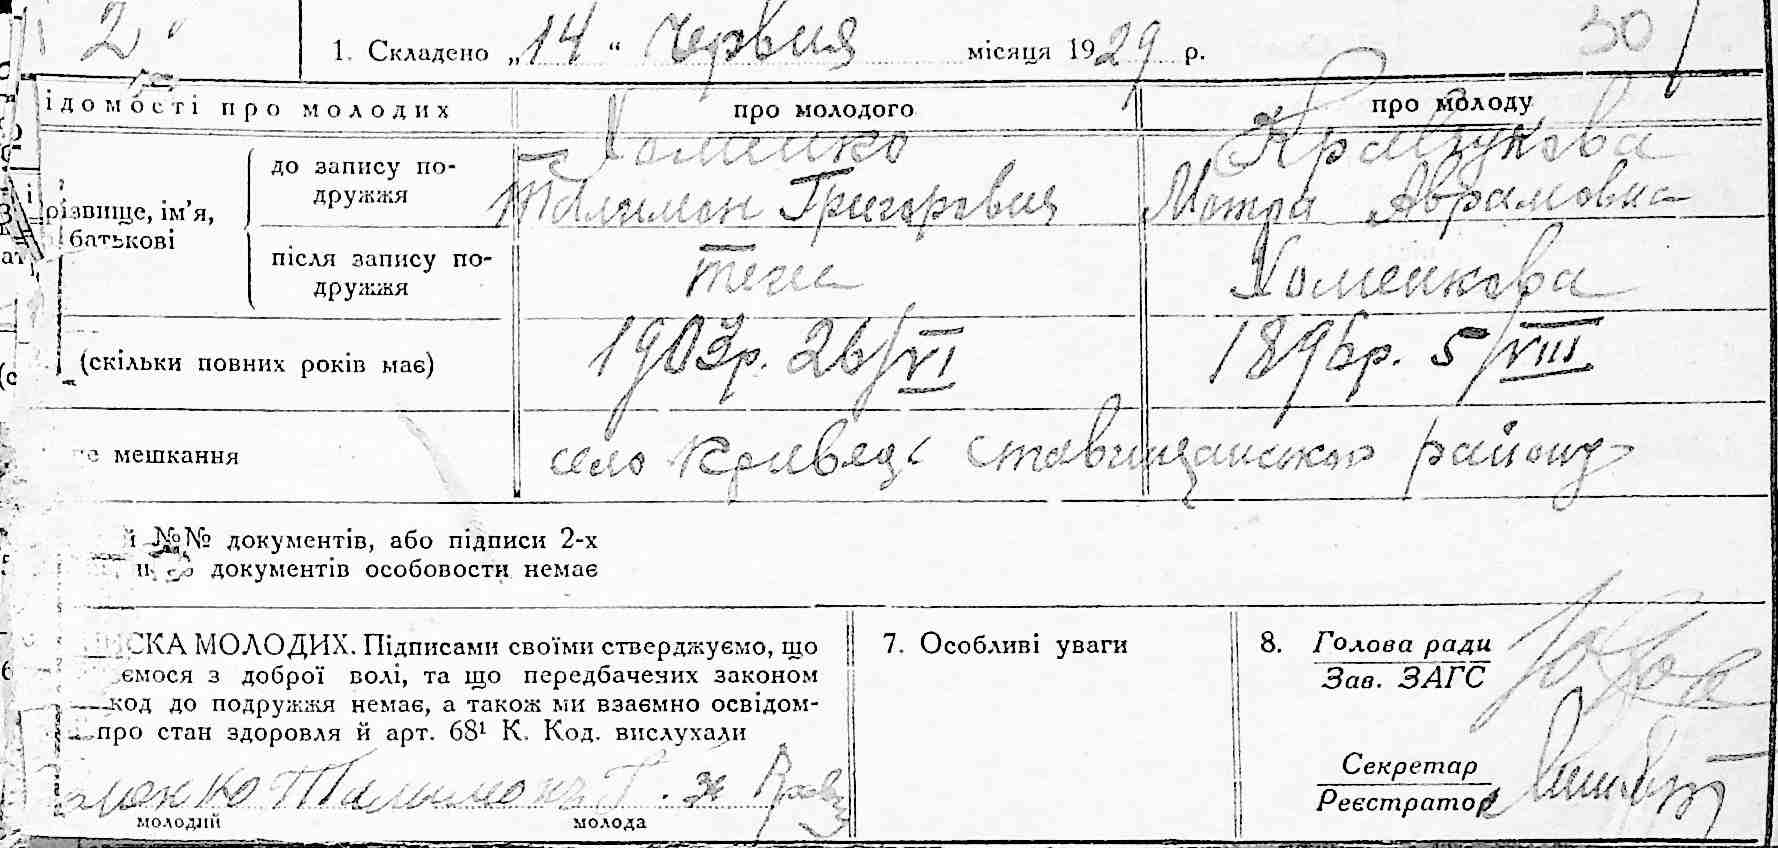 2
1. Складено „14“ Червня місяця 1929 р.
30
ідомості про молодих
про молодого
про молоду
різвище, ім’я,
батькові
до запису по-
дружжя
Хоменко
Талимон Григорович
Кравчукова
Мотря Аврамовна
після запису по-
дружжя
теж
Хоменкова
(скільки повних років має)
1903р. 26/VI
1896р. 5/VIII
мешкання
село Кривець Ставищанського району
й №№ документів, або підписи 2-х
документів особовости немає
ИСКА МОЛОДИХ. Підписами своїми стверджуємо, що
ємося з доброї волі, та що передбачених законом
код до подружжя немає, а також ми взаємно освідом-
про стан здоровля й арт. 68¹ К. Код. вислухали
менко Талимон Г.
молодий
молода
7. Особливі уваги
8. Голова ради
Зав. ЗАГС
Секретар
Реєстратор